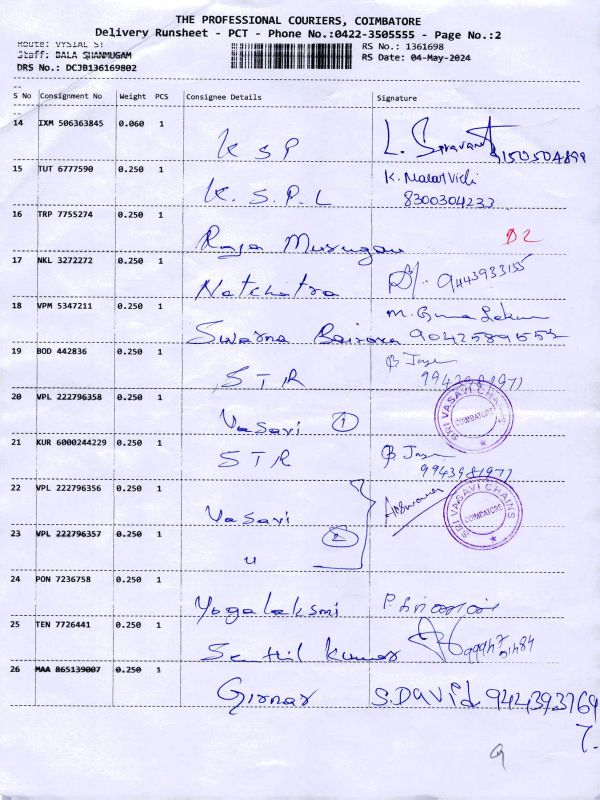 THE PROFESSIONAL COURIERS, COIMBATORE
Delivery Runsheet - PCT - Phone No.:0422-3505555 - Page No.:2
Route: VYSIAL ST
RS No.: 1361698
Staff: BALA SHANMUGAM
RS Date: 04-May-2024
DRS No.: DCJB136169802
S No Consignment No Weight PCS Consignee Details Signature
14 IXM 506363845 0.060 1
KSP L. 9150504899
15 TUT 6777590 0.250 1 K. MalarVidi
K. S. P. L 8300304233
16 TRP 7755274 0.250 1
Raja Murugan D2
17 NKL 3272272 0.250 1
Natchatra 9443933155
18 VPM 5347211 0.250 1
Swarna Bairava
19 BOD 442836 0.250 1
STR 9943981977
20 VPL 222796358 0.250 1
Vasavi 1
SRI VASAVI CHAINS
COIMBATORE
21 KUR 6000244229 0.250 1
STR 9943981977
22 VPL 222796356 0.250 1
Vasavi
SRI VASAVI CHAINS
COIMBATORE
23 VPL 222796357 0.250 1
2
u
24 PON 7236758 0.250 1
Yogalaksmi
25 TEN 7726441 0.250 1
Senthil Kumar
26 MAA 865139007 0.250 1
Girnar S. David 944393769
7.